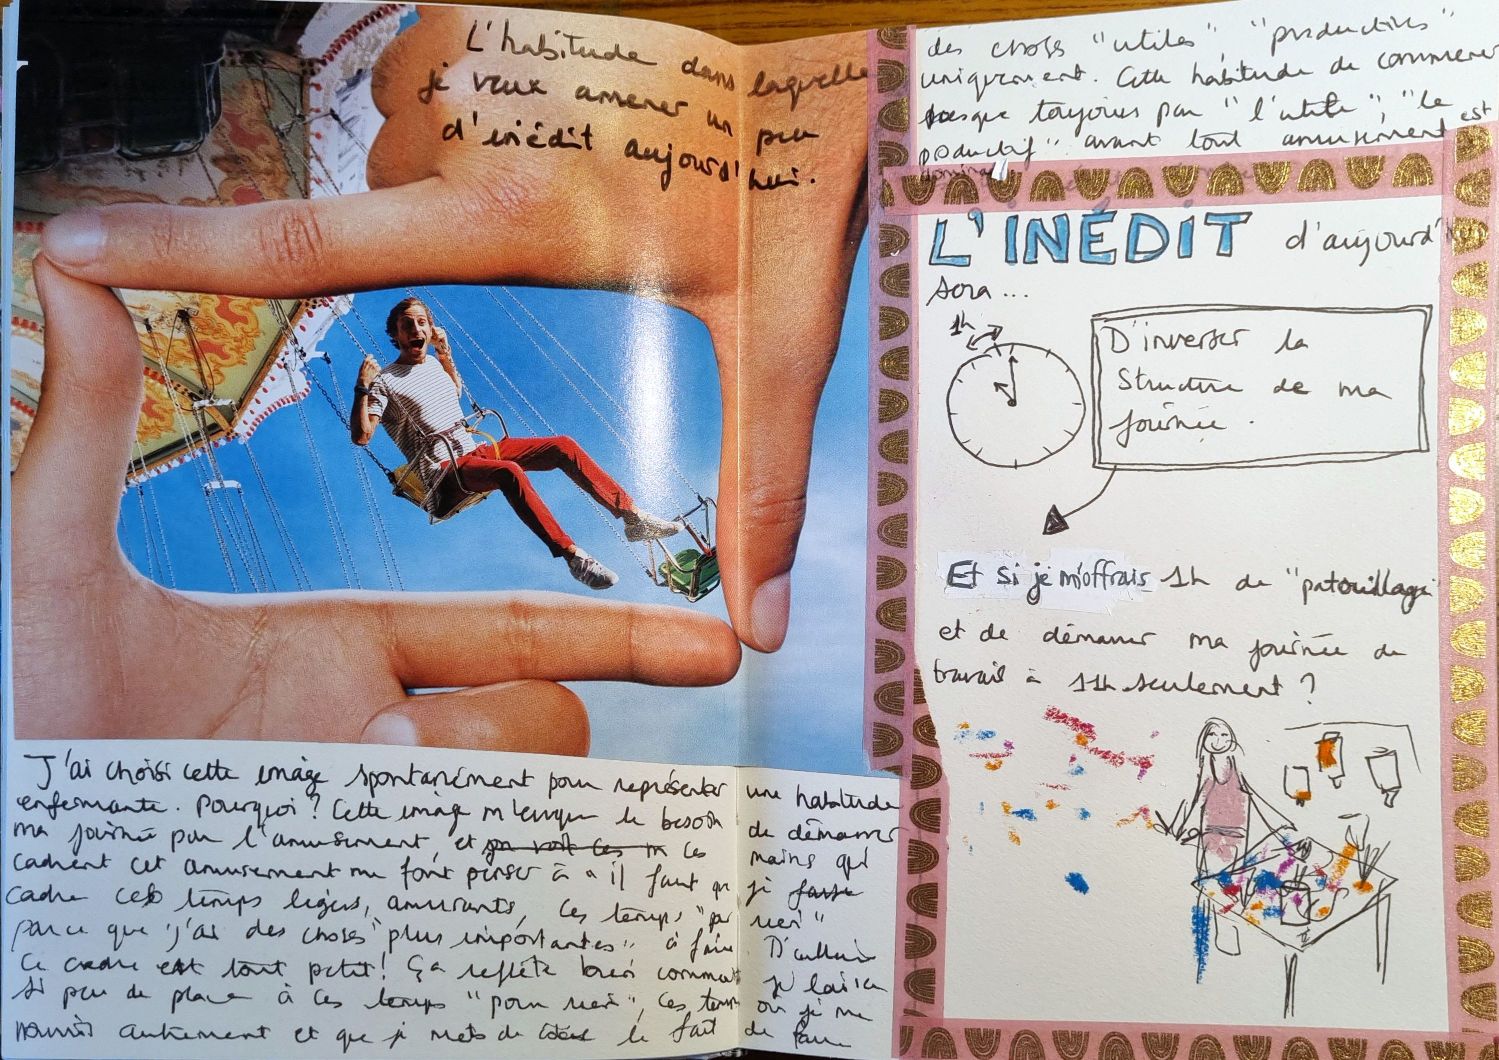 L'habitude dans laquelle
je veux amener un peu
d'inédit aujourd'hui.
J'ai choisi cette image spontanément pour représenter une habitude
enfermante. Pourquoi ? Cette image m'évoque le besoin de démarrer
ma journée par l'amusement, et ces mains qui
cadrent cet amusement me font penser à "il faut que je
cadre ces temps légers, amusants, ces temps "pour rien"
parce que j'ai des choses "plus importantes" à faire. D'ailleurs
ce cadre est tout petit ! Ça reflète bien comment je laisse
si peu de place à ces temps "pour rien", ces temps où je me
nourris autrement et que je mets de côté le fait de faire
des choses "utiles", "productives"
uniquement. Cette habitude de commencer
presque toujours par "l'utile", "le
productif" avant tout amusement est
L'INÉDIT d'aujourd'
sera...
1h
D'inverser la
structure de ma
journée.
Et si je m'offrais 1h de "patouillage"
et de démarrer ma journée de
travail à 11h seulement ?